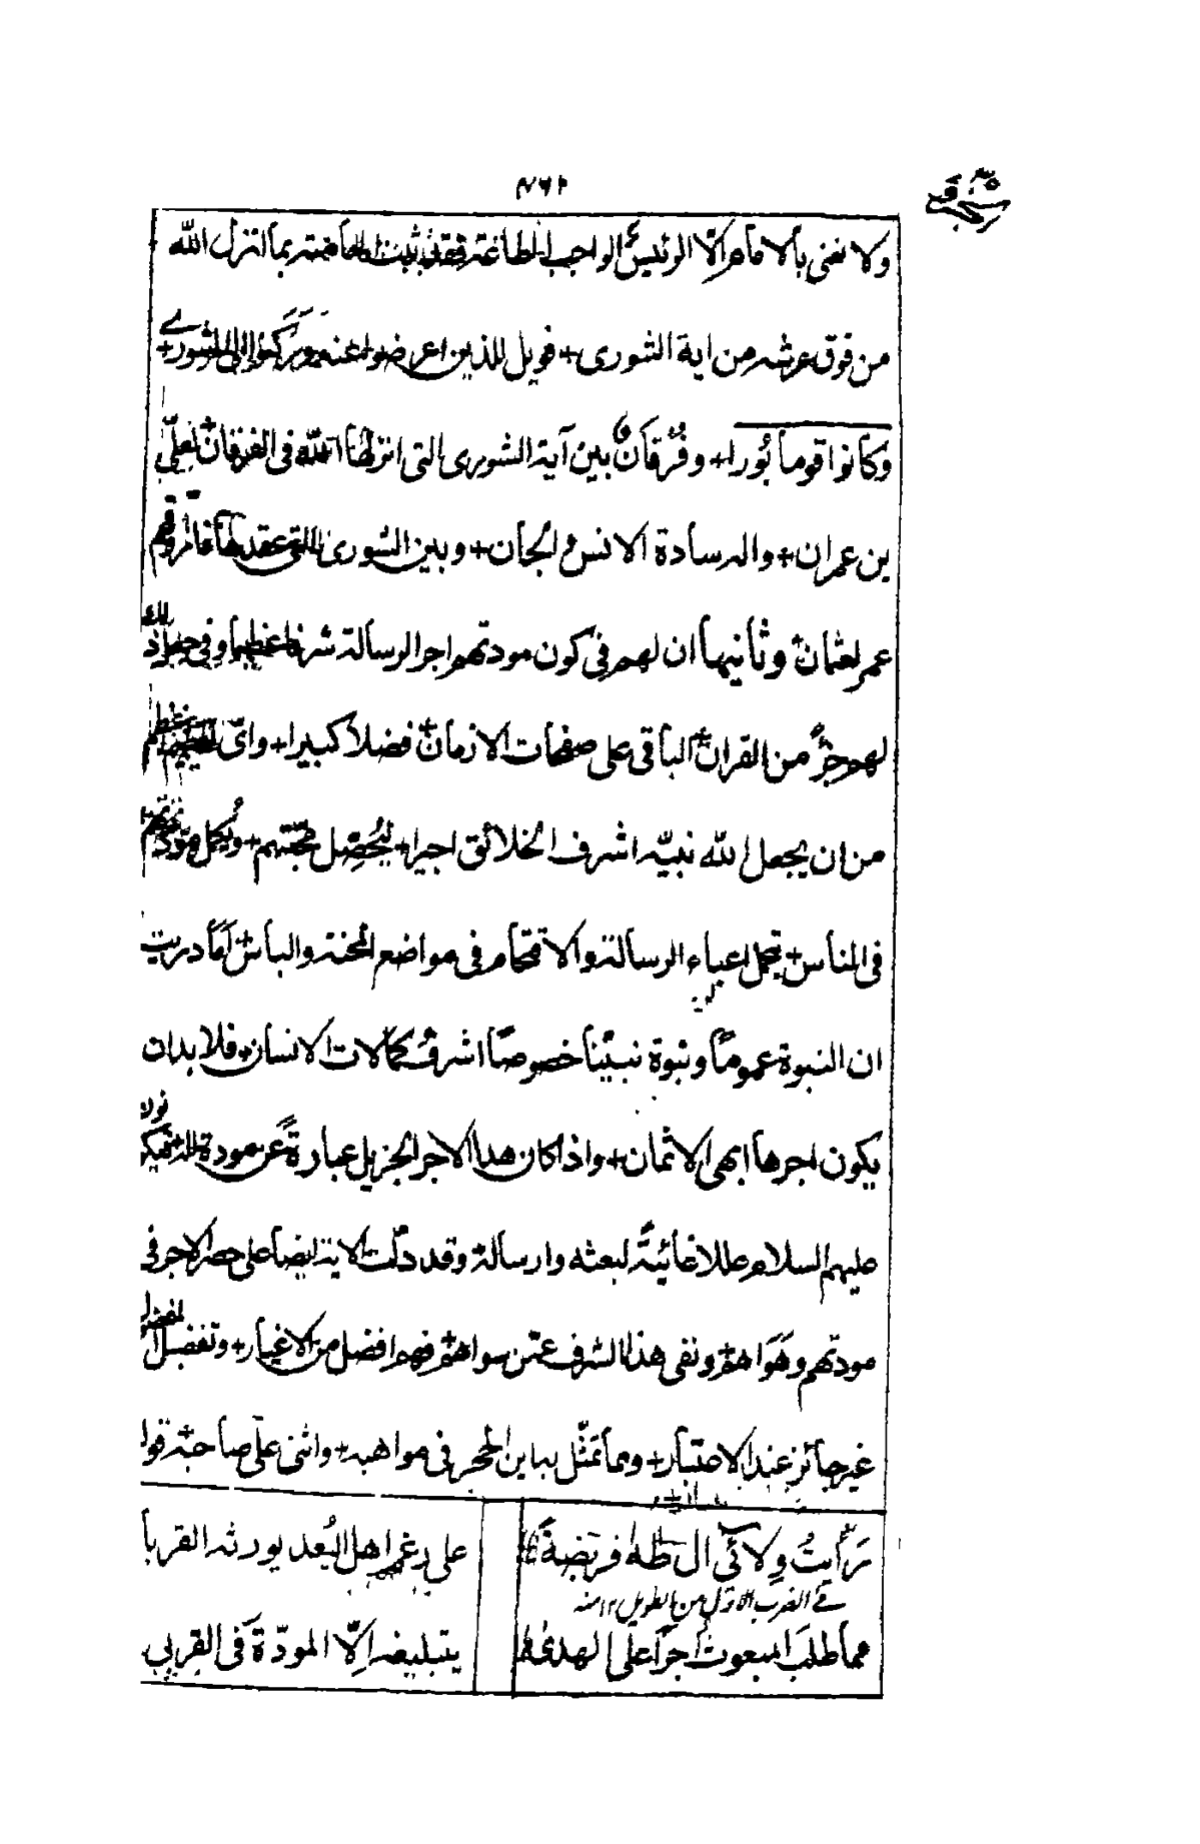 ٢٦١
ولا نعنى بالامام الّا الرئيس الواجب الطاعة فقد ثبت امامته بما انزل الله
من فوق عرشه من اية الشورى + فويل للذين اعرضوا عنه وركنوا الى الشورى +
وكانوا قوما بُورا + وفُرقانٌ بين آية الشورى التى انزلها الله فى الفرقان + لعلىّ
بن عمران + والد سادة الانس والجان + وبين الشورى التى عقدها فاروقهم
عمر لعثمان + وثانيها ان لهم فى كون مودتهم اجر الرسالة شرفا عظيما وفى جعل ذلك
لهم جزءً من القران + الباقى على صفحات الازمان + فضلا كبيرا + واىّ تعظيم اعظم
من ان يجعل الله نبيّه اشرف الخلائق اجيرا + ليُحصِل محبّتهم + ويُكمل مودّتهم
فى الناس + بتحمل اعباء الرسالة والاقتحام فى مواضع المحنة والباس + اَمَا دريت
ان النبوة عموماً ونبوة نبيّنا خصوصاً اشرف كمالات الانسان + فلا بد ان
يكون اجرها ابهى الاثمان + واذا كان هذا الاجر الجزيل عبارةً عن مودة
عليهم السلام عللا غائيةً لبعثه وارساله وقد دلّت الاية ايضا على حصر الاجر فى
مودتهم وهَوَاهم + ونفى هذا الشرف عمّن سواهم + فهم افضل من الاغيار + وتفضيل
غير جائز عند الاعتبار + ومما تَمَثّل به ابن الحجر فى مواهبه + واثنى على صاحبه قوله
رَأيتُ وِلائى ال طه فريضةً على رغم اهل البُعد يورثه القربا
فى الضرب الاول من الطويل ١٢ منه
فما طلب المبعوث اجرًا على الهدى بتبليغه الّا المودّة فى القربى